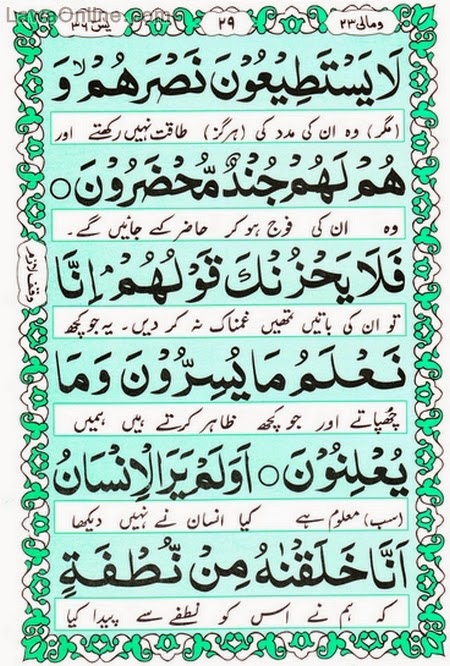 LearnOnline.com
ومالی ٢٣ ٢٩ یٰسٓ ٣٦
لَا يَسْتَطِيْعُوْنَ نَصْرَهُمْ ۙ وَ
(مگر) وہ ان کی مدد کی (ہرگز) طاقت نہیں رکھتے اور
هُمْ لَهُمْ جُنْدٌ مُّحْضَرُوْنَ ○
وہ ان کی فوج ہو کر حاضر کیے جائیں گے۔
فَلَا يَحْزُنْكَ قَوْلُهُمْ ۘ اِنَّا
تو ان کی باتیں تمھیں غمناک نہ کر دیں۔ یہ جو کچھ
نَعْلَمُ مَا يُسِرُّوْنَ وَمَا
چھپاتے اور جو کچھ ظاہر کرتے ہیں ہمیں
يُعْلِنُوْنَ ○ اَوَلَمْ يَرَ الْاِنْسَانُ
(سب) معلوم ہے کیا انسان نے نہیں دیکھا
اَنَّا خَلَقْنٰهُ مِنْ نُّطْفَةٍ
کہ ہم نے اس کو نطفے سے پیدا کیا
وقف لازم